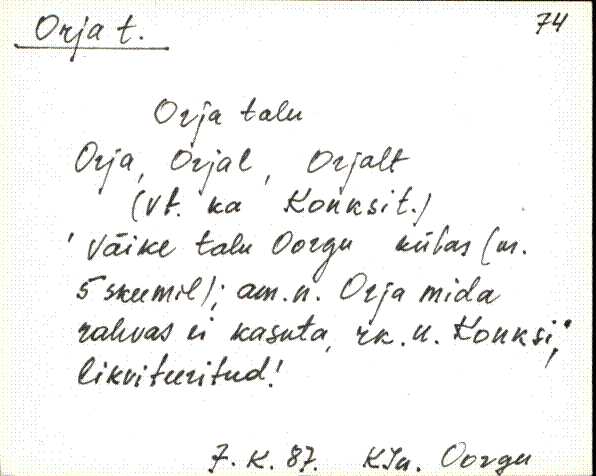 Orja t.
74
Orja talu
Orja, Orjal, Orjalt
(vt. ka Konksi t.)
'Väike talu Oorgu külas (nr.
5 skeemil); am.n. Orja mida
rahvas ei kasuta, rk.n. Konksi,"
likviteeritud!
7. K. 87. KJn. Oorgu